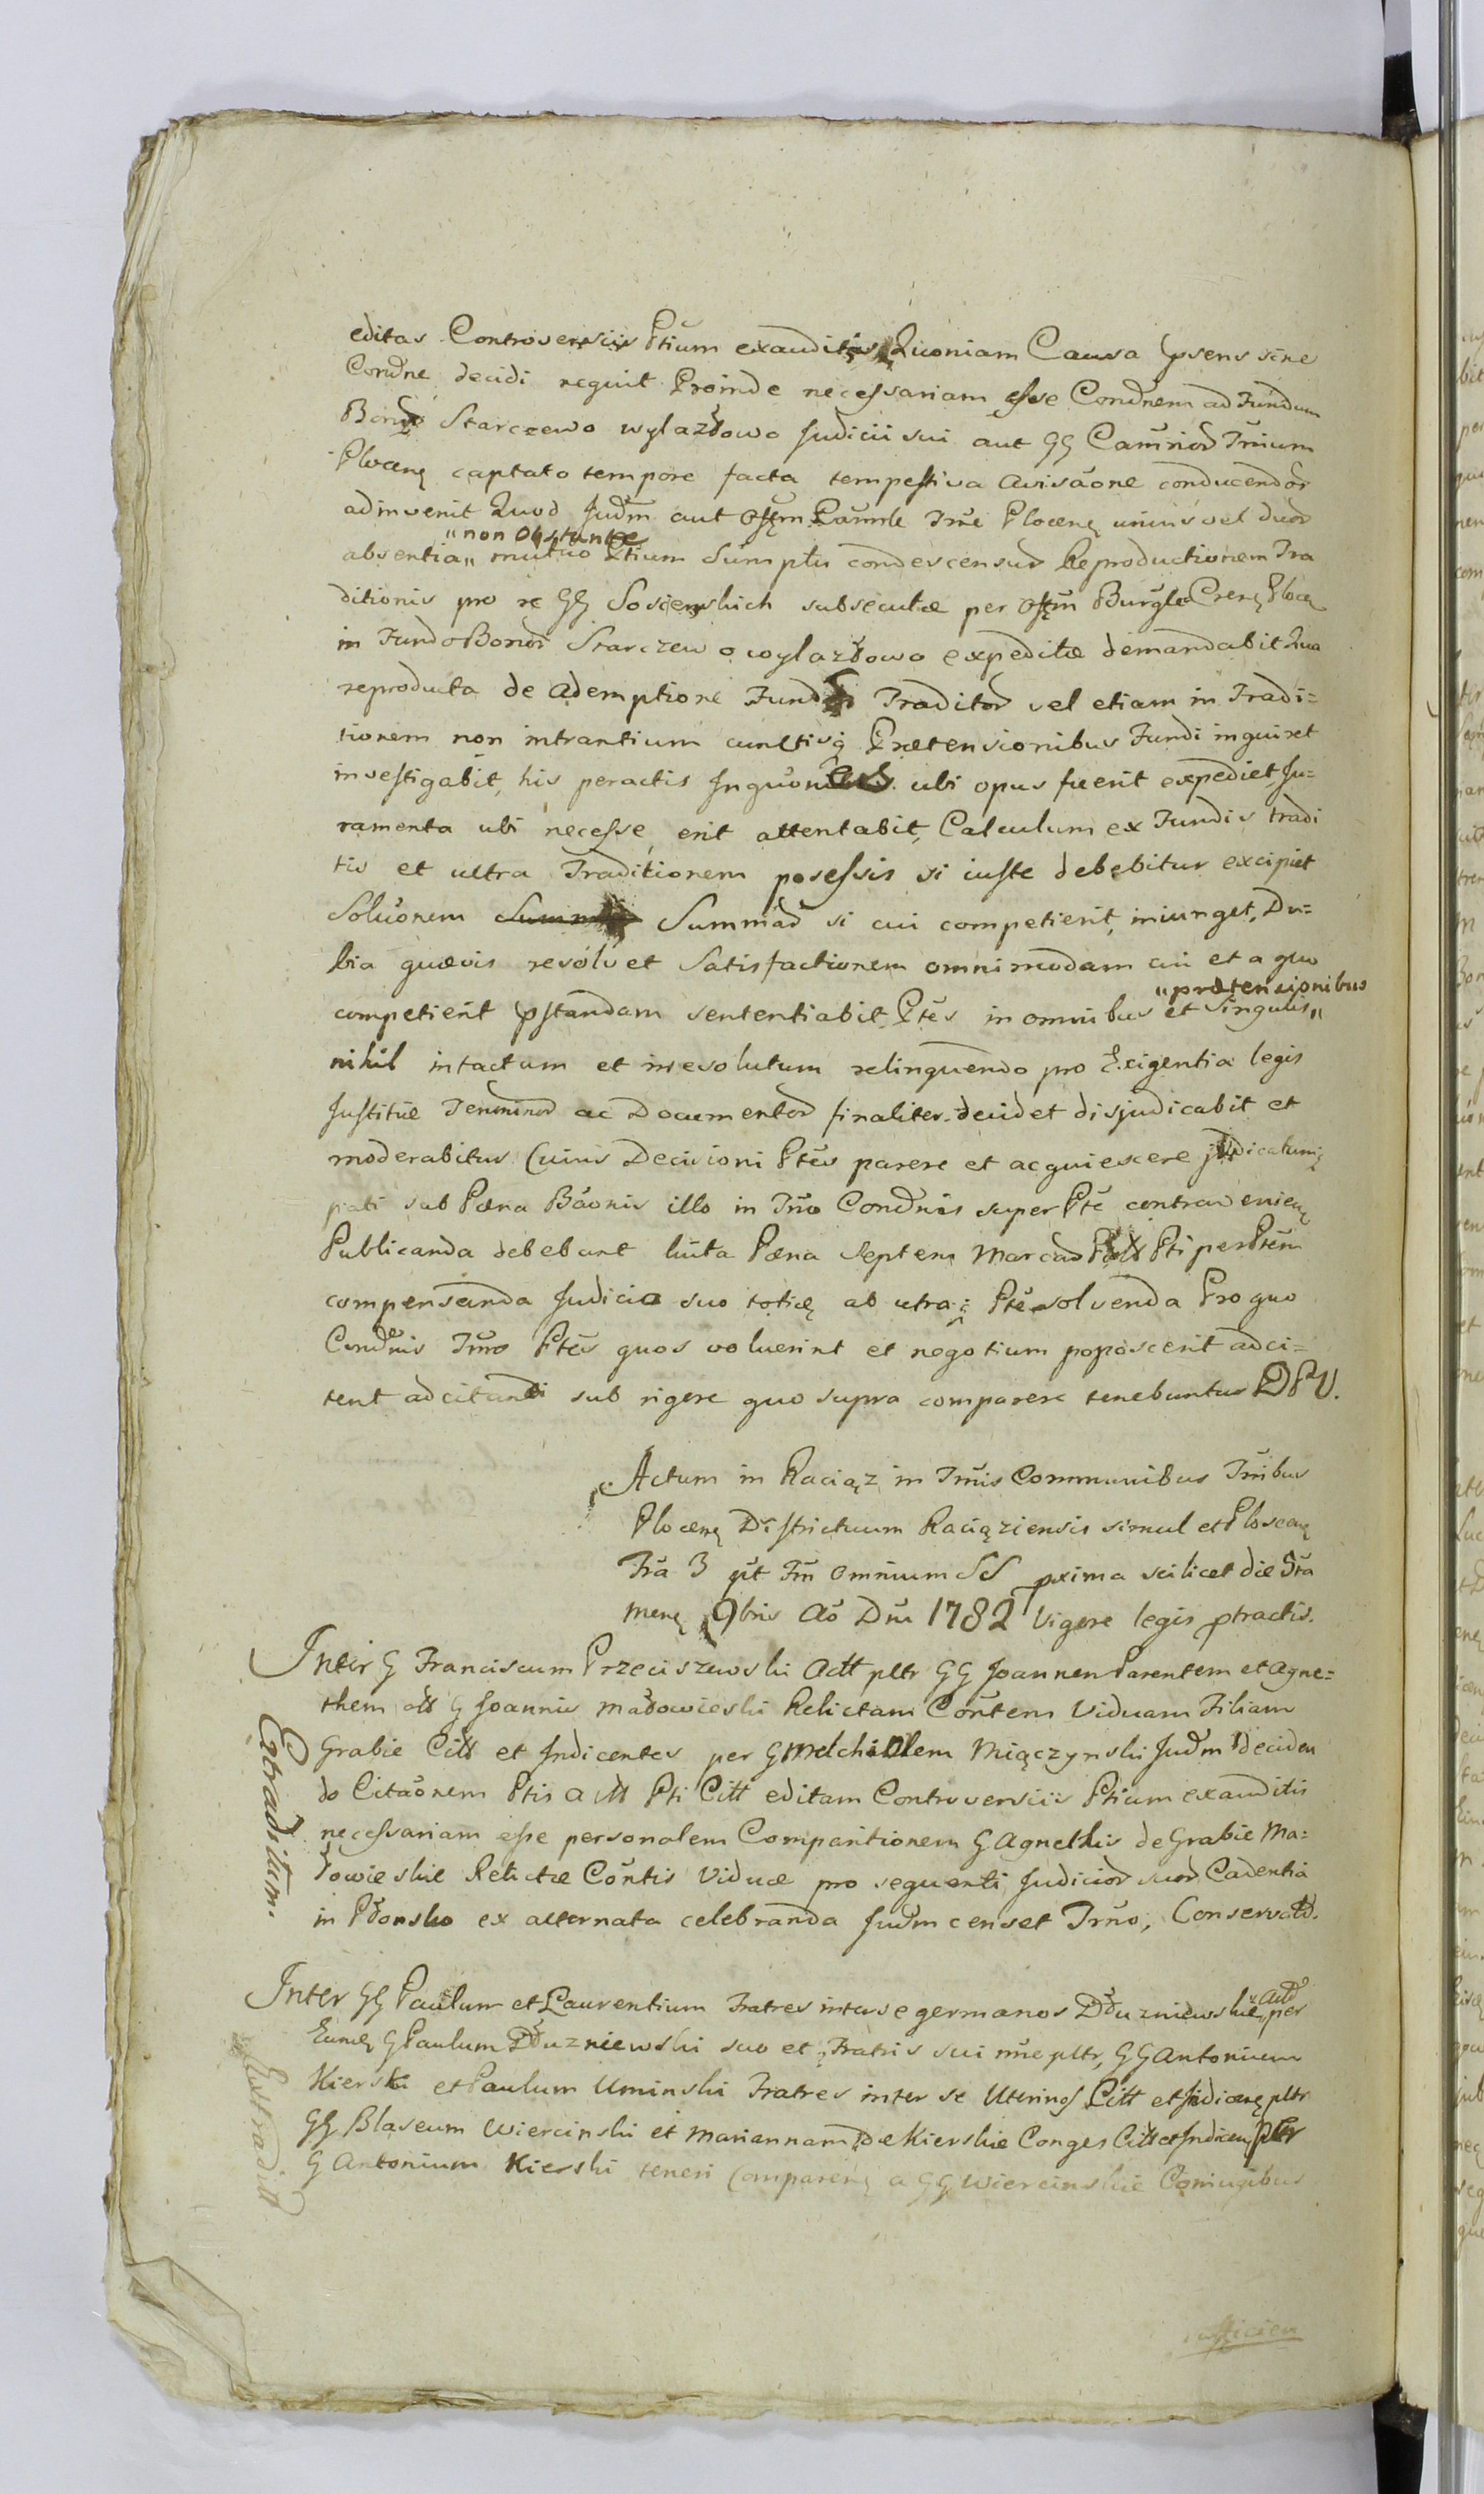 editas Controversiis Ptium exauditis Quoniam Causa psens sine
Condne decidi nequit Proinde necessariam esse Condnem ad Fundum
Bonor Starczewo wylazłowo Judicii sui aut GG Camrior Trium
Plocen captato tempore facta tempestiva avisaone conducendor
adinvenit Quod Judm aut Offm Camrle Trre Plocen unius vel duor
"non Obstante
absentia" mutuo Ptium Sumptu condescensur Reproductionem Tra
ditionis pro re GG Sosienskich subsecutæ per Offm Burgle Cren Ploce
in Fundo Bonor Starczewo wylazłowo expeditæ demandabit Qua
reproducta de Ademptione Fundor Traditor vel etiam in Tradi=
tionem non intrantium cunctisq Prætensionibus Fundi inquiret
investigabit, his peractis Inquones ubi opus fuerit expediet, Ju=
ramenta ubi necesse erit attentabit, Calculum ex Fundis tradi
tis et ultra Traditionem posessis si iuste debebitur excipiet
Soluonem Summar si cui competierit, iniunget, Du=
bia quævis resolvet Satisfactionem omnimodam cui et a quo
"prætensionibus
competierit pstandam sententiabit, Ptes in omnibus et Singulis"
nihil intactum et irresolutum relinquendo pro Exigentia legis
Justitiæ Terminor ac Documentor finaliter decidet disjudicabit et
moderabitur Cuius Decisioni Ptes parere et acquiescere judicatumq
pati sub Pæna Baonis illo in Trno Condnis super Pte contravenien
Publicanda debebunt luita Pæna Septem Marcar Pti per Ptem
compensanda Judicio suo toties ab utraq Pte solvenda Pro quo
Condnis Trno Ptes quos voluerint et negotium poposcerit adci=
tent adcitandi sub rigore quo supra comparere tenebuntur DPV.
Actum in Raciąz in Trnis Communibus Tribus
Plocen Districtuum Raciąziensis simul et Ploscen
Fra 3 pt Fm Omnium SS pxima scilicet die 5ta
Mens 9bris Ao Dni 1782 Vigore legis ptractis.
Inter G Franciscum Przeciszewski Actt pltr GG Joannen Parentem et Agne=
them olt G Joannis Madowieski Relictam Contem Viduam Filiam
Grabie Citt et Indicentes per G Melchiolem Miączynski Judm Deciden
do Citaonem Ptis Actt Pti Citt editam Controversiis Ptium exauditis
necessariam esse personalem Comparitionem G Agnethis de Grabie Ma=
dowieskie Relictæ Contis Viduæ pro sequenti Judicior suor Cadentia
in Płonsko ex alternata celebranda Judm censet Trno, Conservatd.
Extraditum.
Inter GG Paulum et Laurentium Fratres inter se germanos Dłuzniewskie "Actt" per
Eunde G Paulum Dłuzniewski suo et Fratris sui nne pltr, GG Antonium
Kierski et Paulum Uminski Fratres inter se Uterinos Citt et Indicen pltr
GG Blaseum Wiercinski et Mariannam de Kierskie Conges Citt et Indicen pltr
G Antonium Kierski teneri Comparen a GG Wiercinskie Coniugibus
Extraditt